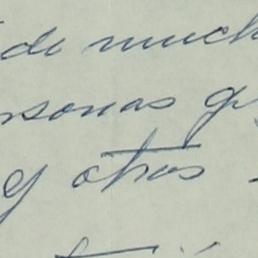 de much
rsonas q
y otros